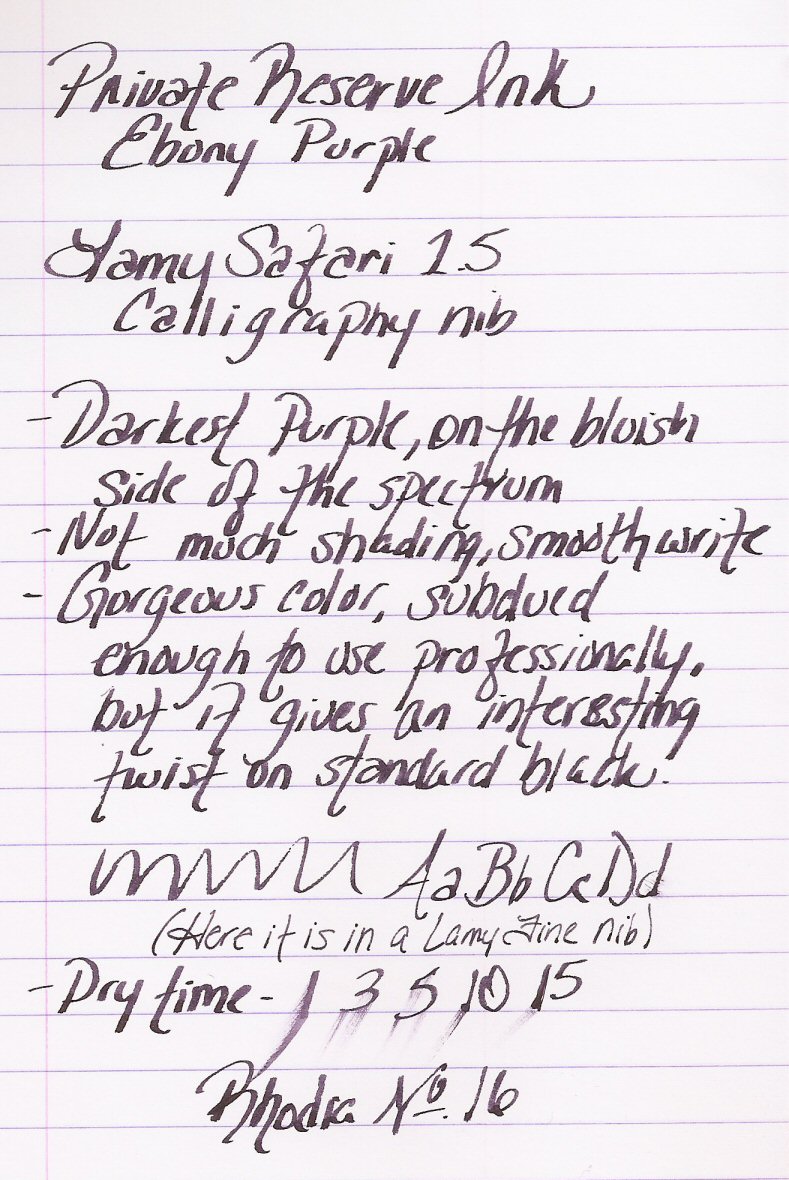 Private Reserve Ink
Ebony Purple
Lamy Safari 1.5
Calligraphy nib
- Darkest Purple, on the bluish
side of the spectrum
- Not much shading, smooth write
- Gorgeous color, subdued
enough to use professionally,
but it gives an interesting
twist on standard black.
AaBbCcDd
(Here it is in a Lamy Fine nib)
- Dry time - 1 3 5 10 15
Rhodia No. 16